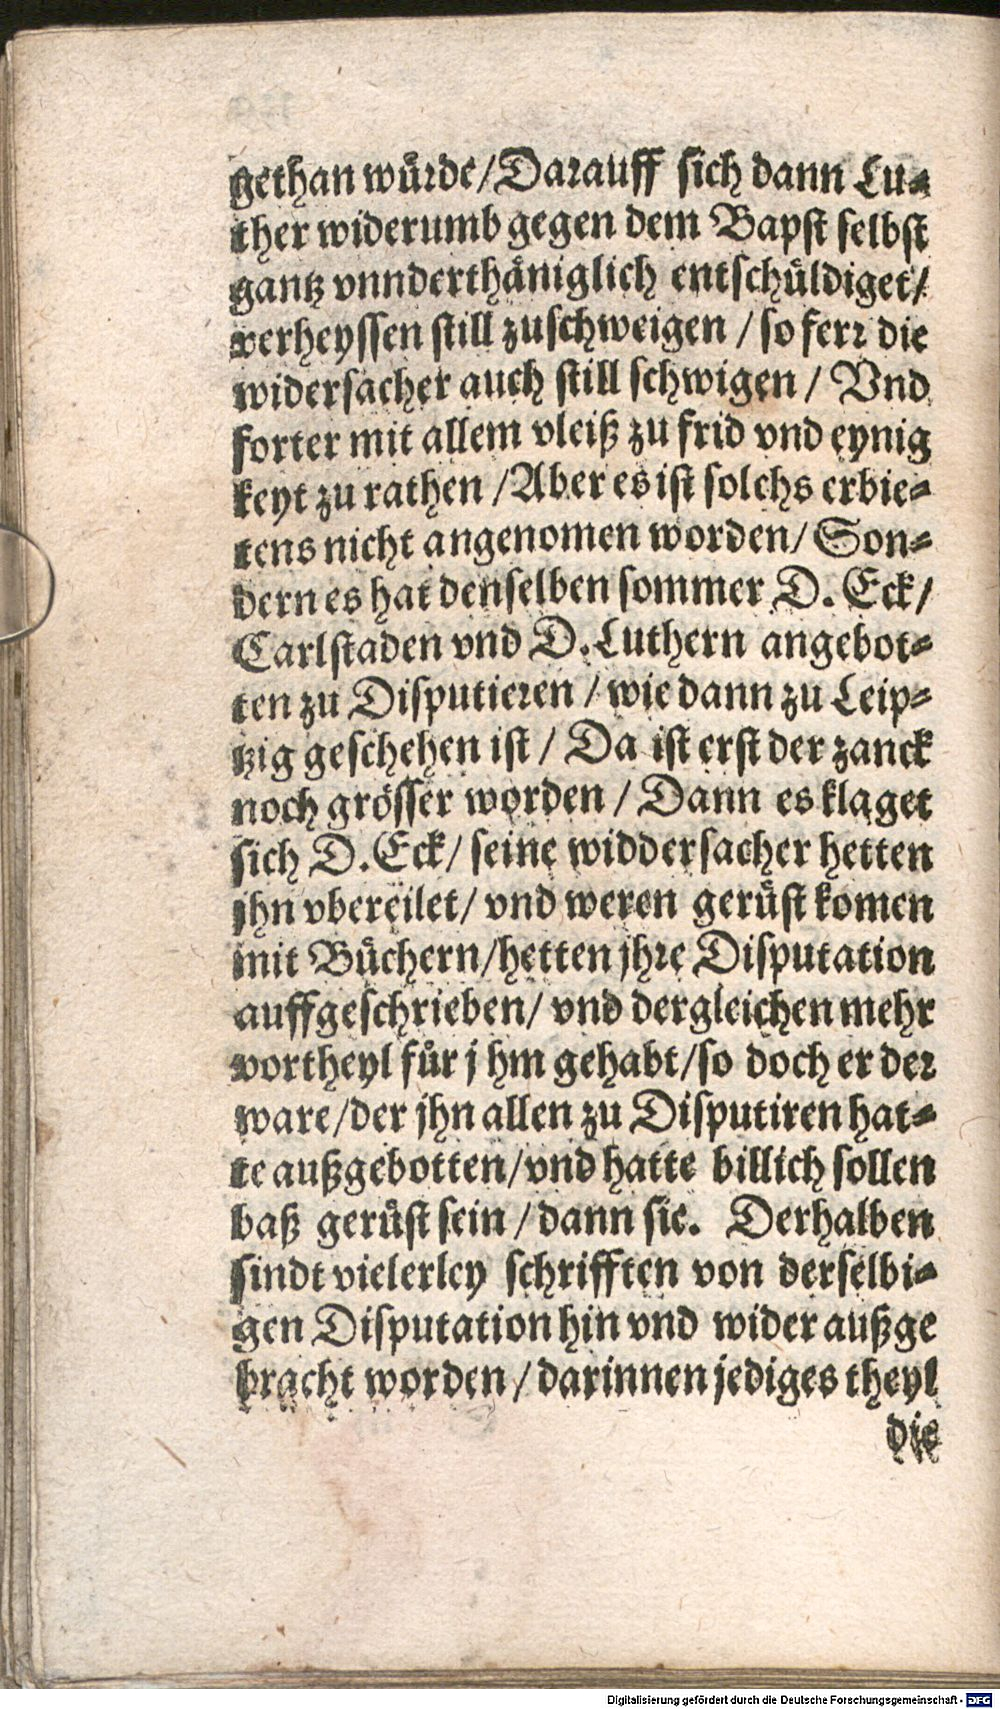 gethan wuͤrde/Darauff sich dann Lu⸗
ther widerumb gegen dem Bapst selbst
gantz vnnderthaͤniglich entschuͤldiget/
verheyssen still zuschweigen / so ferr die
widersacher auch still schwigen / Vnd
forter mit allem vleiß zu frid vnd eynig
keyt zu rathen /Aber es ist solchs erbie⸗
tens nicht angenomen worden/ Son⸗
dern es hat denselben sommer D. Eck/
Carlstaden vnd D. Luthern angebot⸗
ten zu Disputieren / wie dann zu Leip⸗
tzig geschehen ist / Da ist erst der zanck
noch groͤsser worden / Dann es klaget
sich D. Eck/ seine widdersacher hetten
jhn vbereilet/ vnd weren geruͤst komen
mit Buͤchern/hetten jhre Disputation
auffgeschrieben/ vnd dergleichen mehr
vortheyl fuͤr jhm gehabt/so doch er der
ware/der jhn allen zu Disputiren hat⸗
te außgebotten/vnd hatte billich sollen
baß geruͤst sein / dann sie. Derhalben
sindt vielerley schrifften von derselbi⸗
gen Disputation hin vnd wider außge
bracht worden / darinnen jediges theyl
die
Digitalisierung gefördert durch die Deutsche Forschungsgemeinschaft - DFG